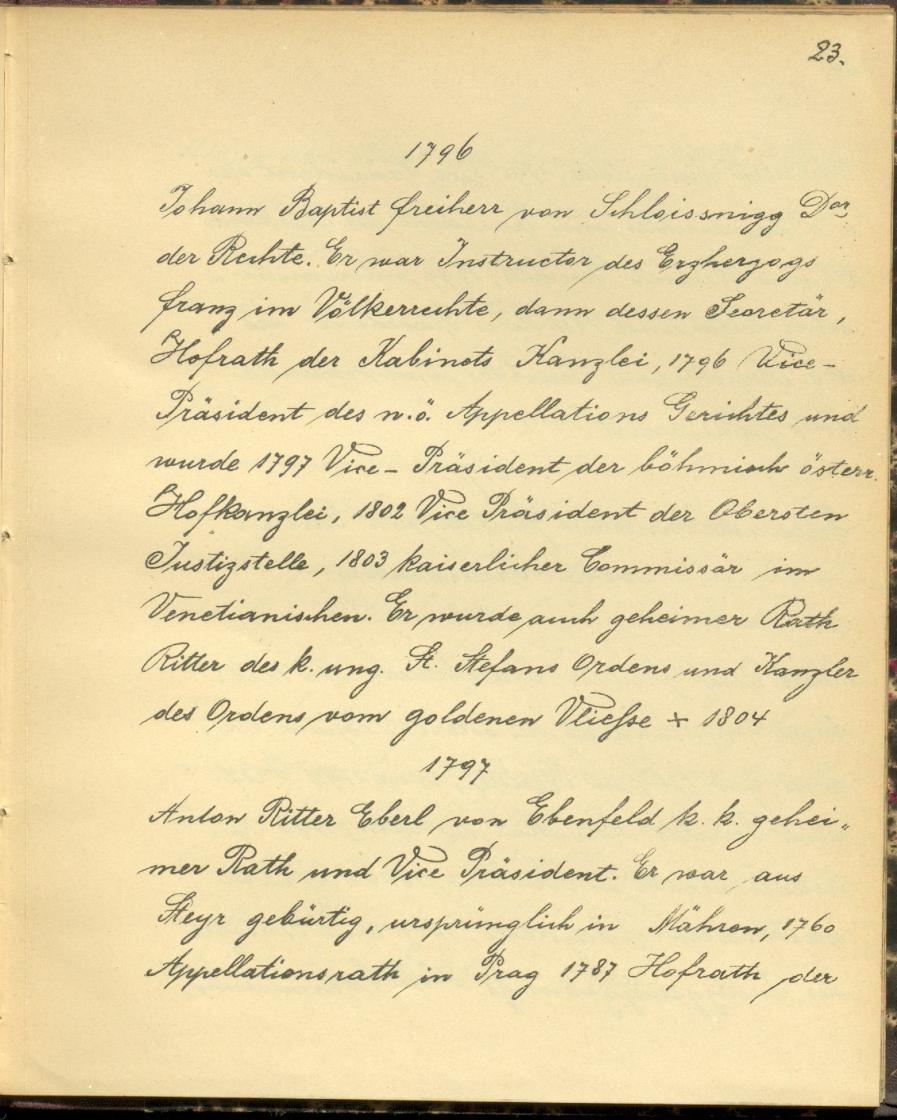 23.
1796
Johann Baptist Freiherr von Schloissnigg Dor
der Rechte. Er war Instructor des Erzherzogs
Franz im Völkerrechte, dann dessen Secretär,
Hofrath der Kabinets Kanzlei, 1796 Vice-
Präsident des n.ö. Appellations Gerichtes und
wurde 1797 Vice- Präsident der böhmisch österr.
Hofkanzlei, 1802 Vice Präsident der Obersten
Justizstelle, 1803 kaiserlicher Commissär im
Venetianischen. Er wurde auch geheimer Rath
Ritter des k. ung. St. Stefans Ordens und Kanzler
des Ordens vom goldenen Vließse + 1804
1797
Anton Ritter Eberl von Ebenfeld k. k. gehei„
mer Rath und Vice Präsident. Er war aus
Steyr gebürtig, ursprünglich in Mähren, 1760
Appellationsrath in Prag 1787 Hofrath der